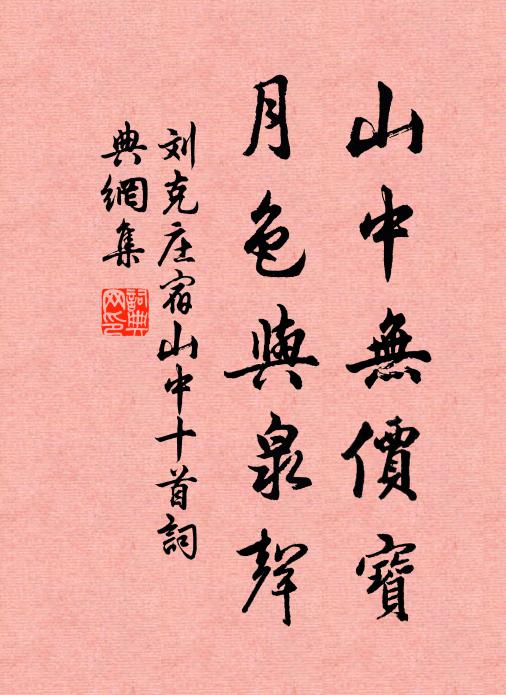 山中無價寶
月色與泉聲
刘克庄宿山中十首詞
典網集
詞典网印